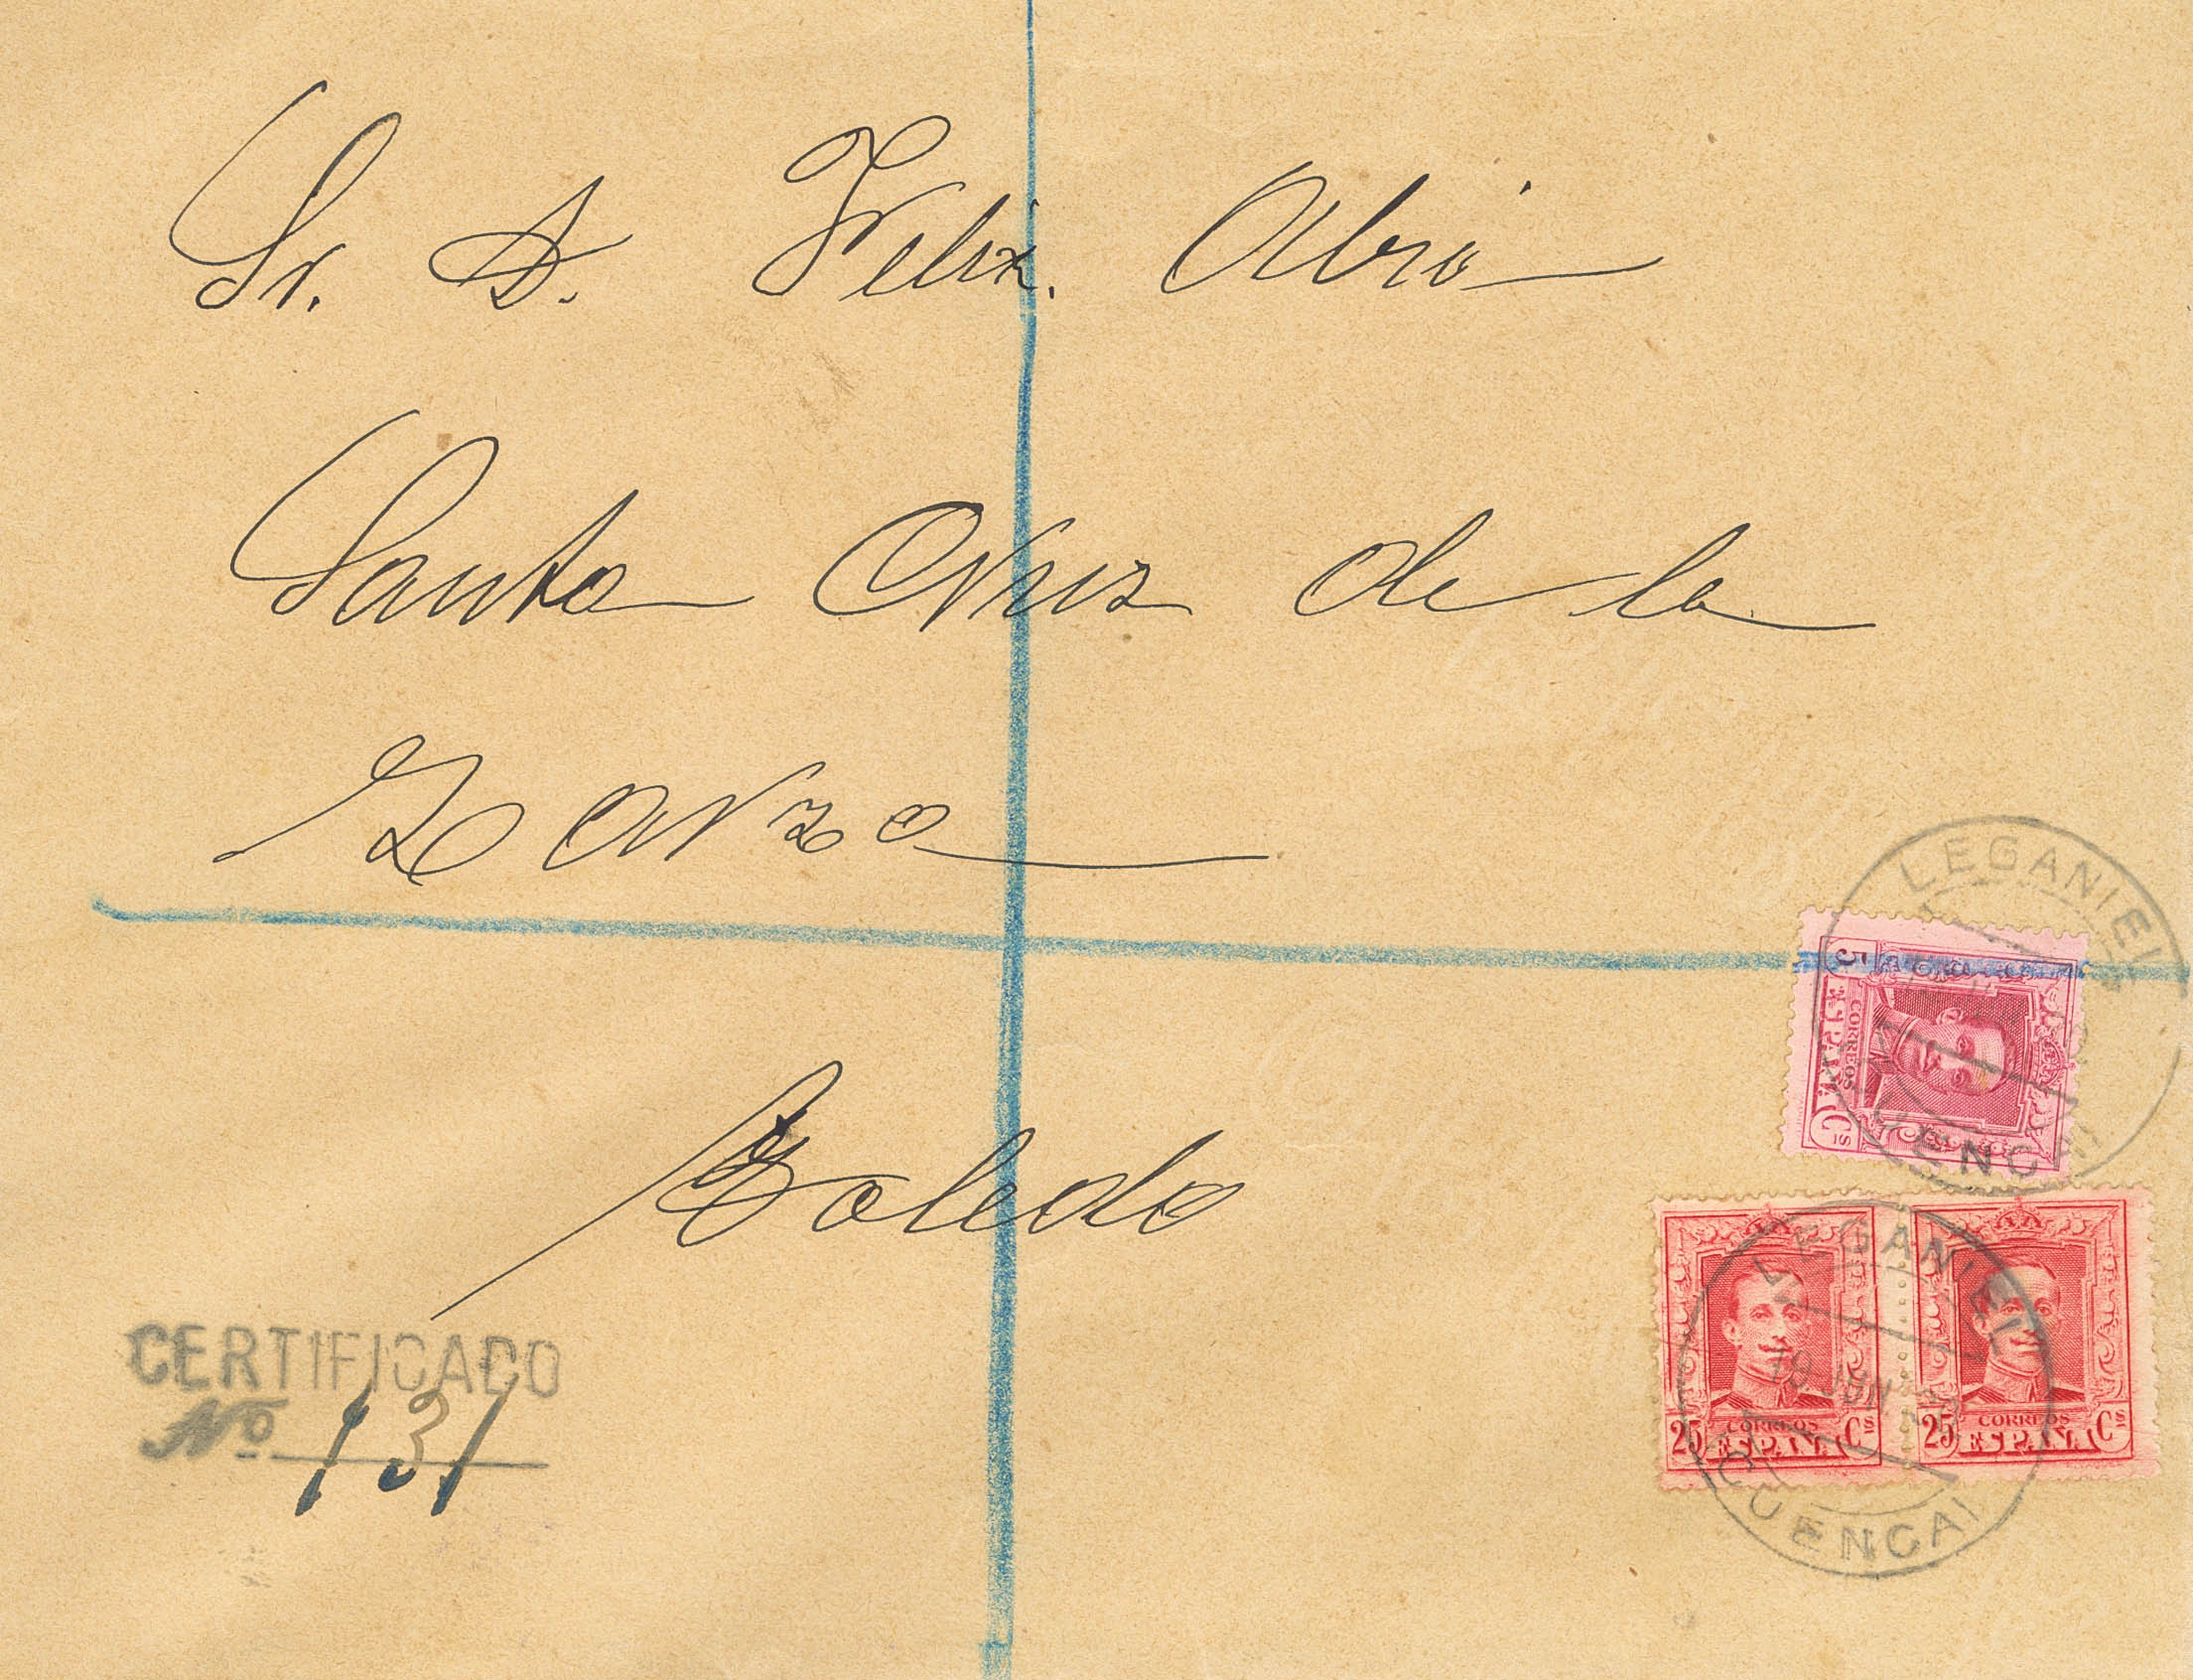 Sr. D. Felix. Abrio
Santa Cruz de la
Zarza
Toledo
CERTIFICADO
Nº 131
LEGANIEL
5 Cs
CORREOS
ESPAÑA
CUENCA
LEGANIEL
19 JUN
25 CORREOS Cs
ESPAÑA
25 CORREOS Cs
ESPAÑA
CUENCA